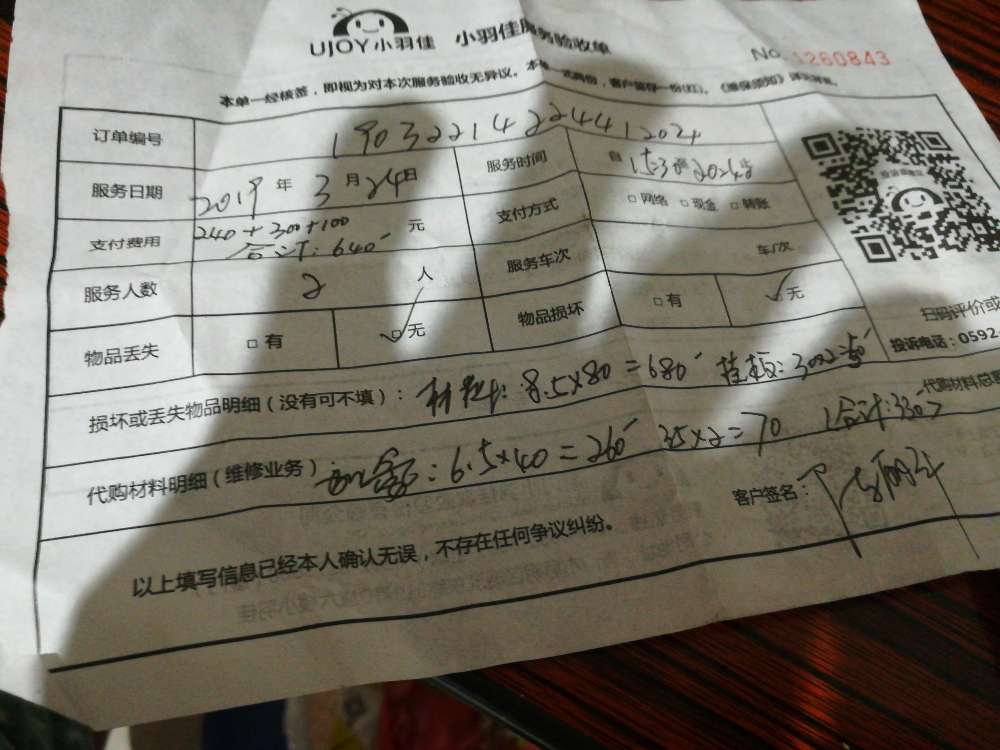 UJOY小羽佳 小羽佳服务验收单
No 1260843
本单一经核签，即视为对本次服务验收无异议。本单一式两份，客户留存一份(红)。《维保须知》详见背面。
订单编号 190322142244412024
服务日期 2019年3月24日 服务时间 自
支付费用 240+300+100 元 支付方式 □网络 □现金 □转账
合计：640
服务人数 2 人 服务车次 车/次
物品丢失 □有 □无 物品损坏 □有 □无
扫码评价或
投诉电话：0592-
损坏或丢失物品明细（没有可不填）： 8.5×80=680
代购材料总
代购材料明细（维修业务）：6.5×40=260 35×2=70 (合计:330)
客户签名：
以上填写信息已经本人确认无误，不存在任何争议纠纷。